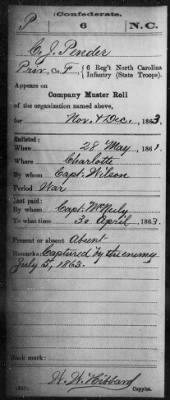 Confederate.
P 6 N.C.
C. J. Pender
Priv, Co. F, 6 Reg't North Carolina
Infantry (State Troops).
Appears on
Company Muster Roll
of the organization named above,
for Nov. & Dec., 1863.
Enlisted:
When 28 May, 1861.
Where Charlotte
By whom Capt. Wilson
Period War
Last paid:
By whom Capt. McNeely
To what time 30 April, 1863.
Present or absent Absent
Remarks: Captured by the enemy
July 5, 1863.
Book mark:
Copyist.